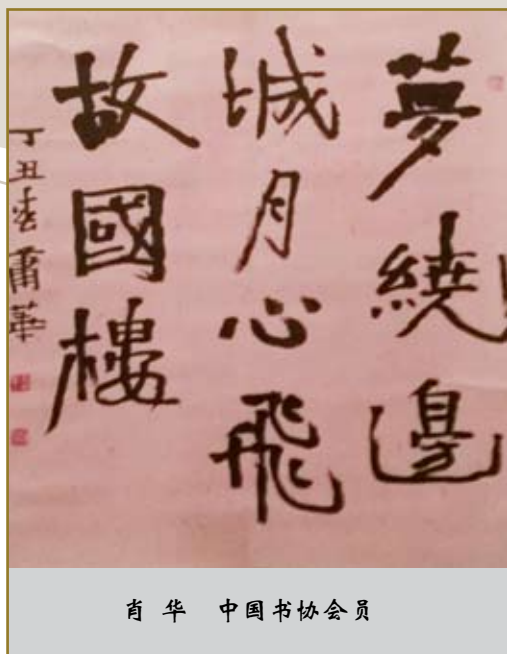 夢繞邊
城月心飛
故國樓
丁丑春蕭華
肖华 中国书协会员